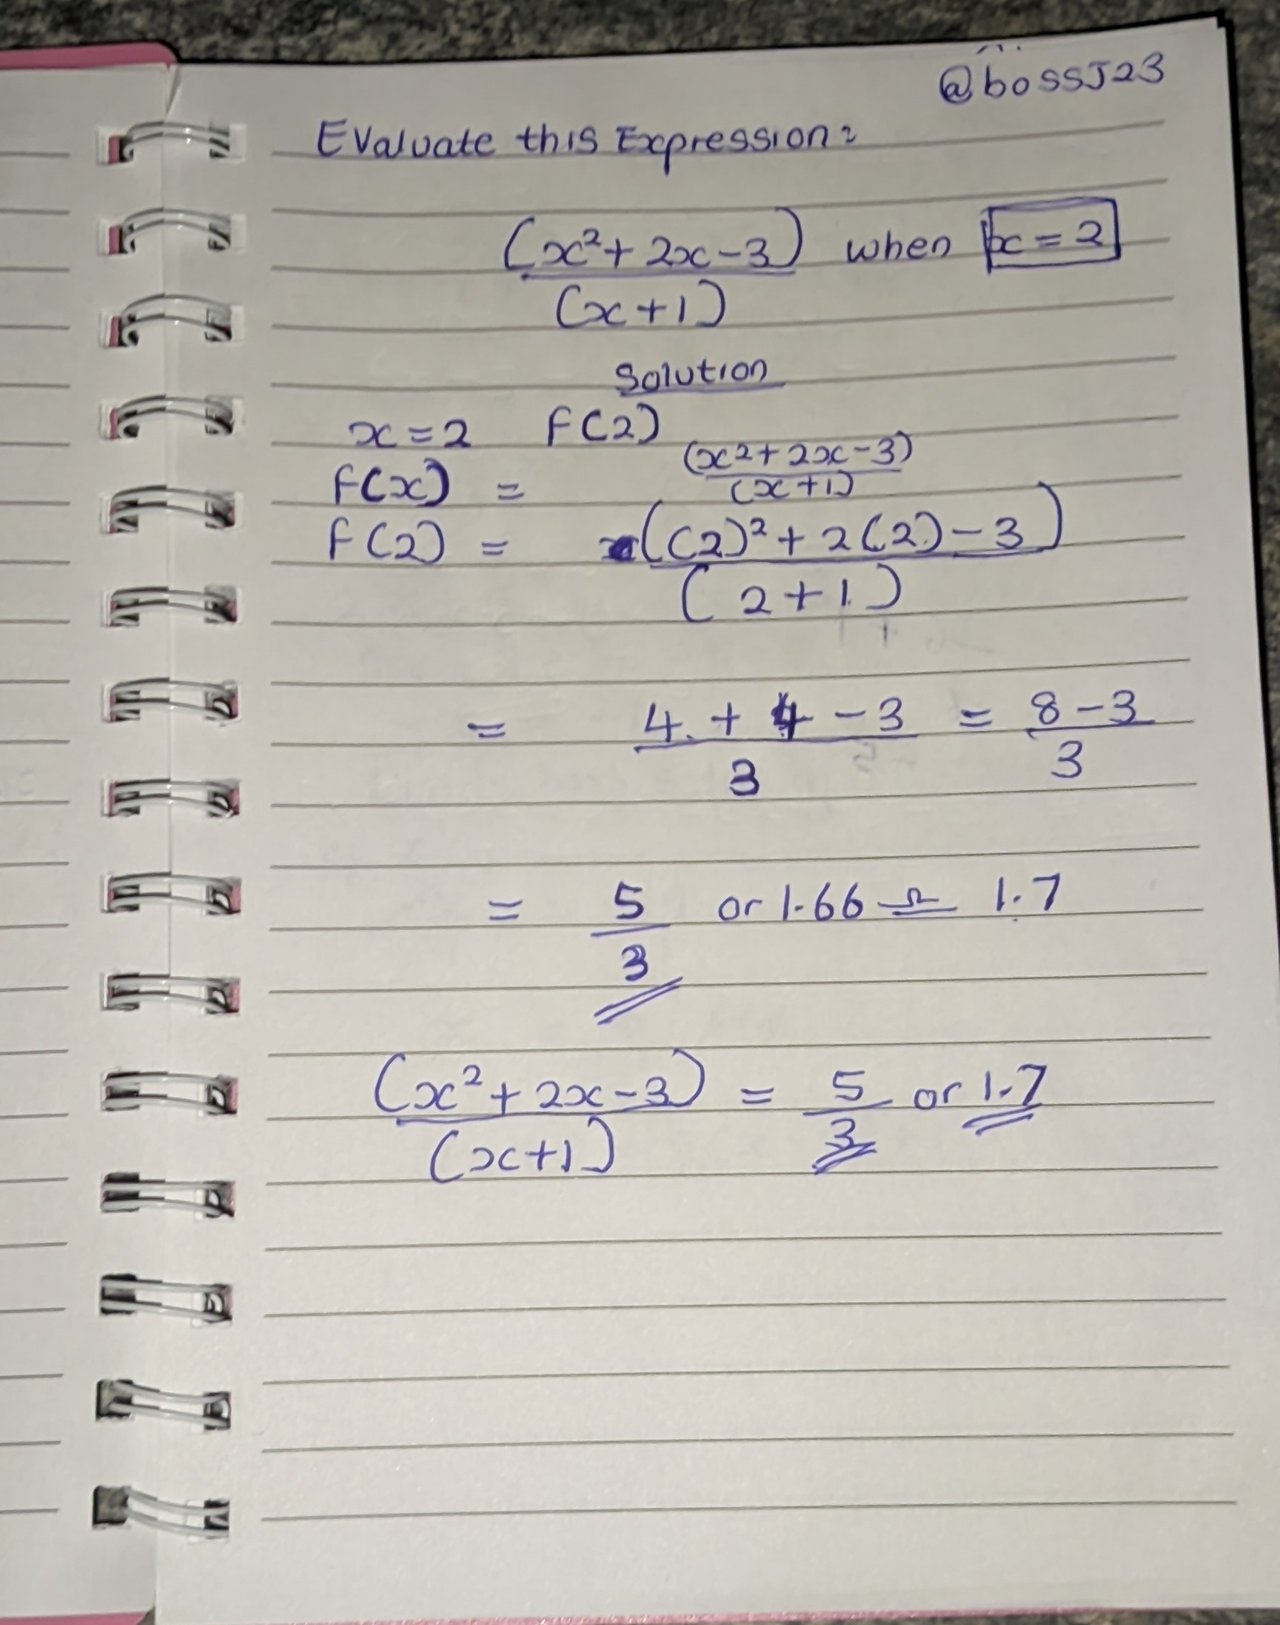 @bossJ23
Evaluate this Expression:
(x²+2x-3) when x=2
(x+1)
Solution
x=2 F(2)
F(x) = (x²+2x-3)
(x+1)
F(2) = ((2)²+2(2)-3)
(2+1)
= 4+4-3 = 8-3
3 3
= 5 or 1.66 ≏ 1.7
3
(x²+2x-3) = 5 or 1.7
(x+1) 3